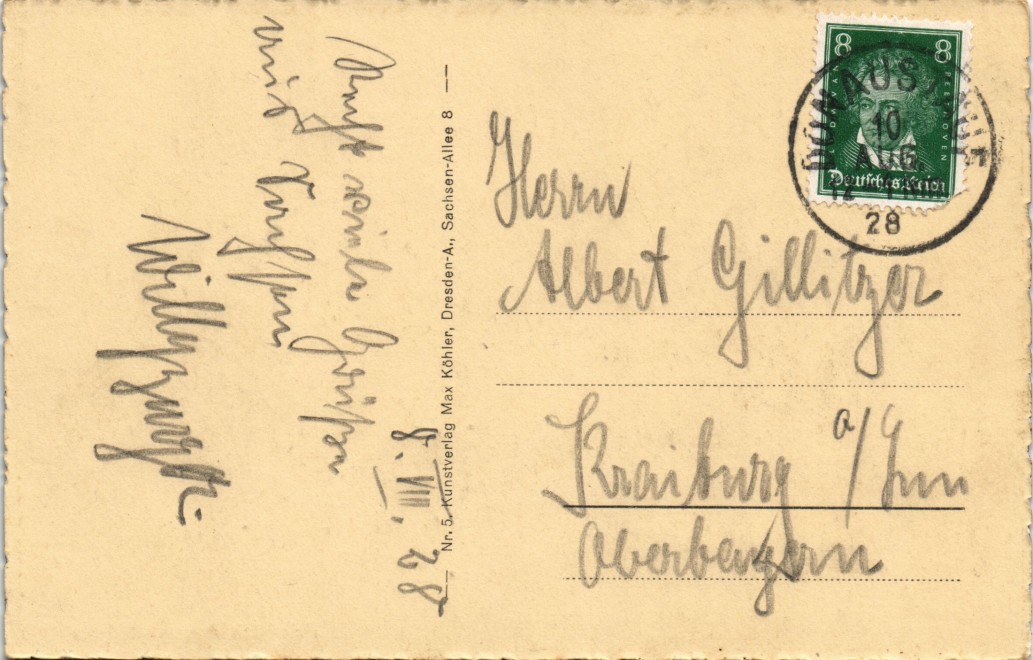 8. VIII. 28
Recht viele Grüße
aus
Nr. 5. Kunstverlag Max Köhler, Dresden-A., Sachsen-Allee 8
8 8
BEETHOVEN
Deutsches Reich
DONAUSTAUF
10
AUG
12
28
Herrn
Albert Gillitzer
Kraiburg a/Inn
Oberbayern